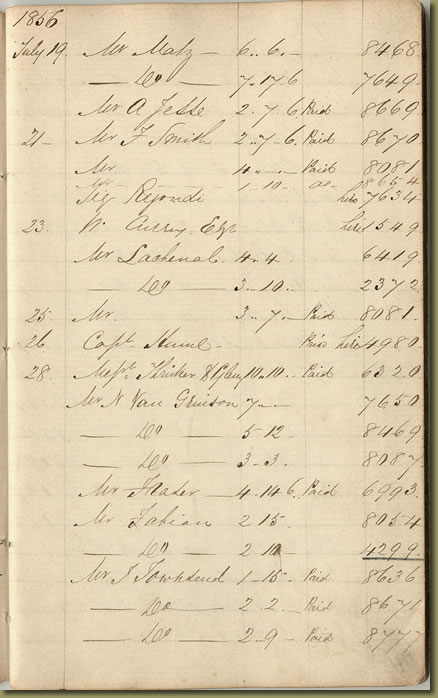 1856
July 19. Mr Matz — 6.. 6. — 8468
— Do — 7. 17. 6 7649
Mr A Jesse 2. 7. 6. Paid 8669
21 — Mr F Smith 2.. 7 — 6. Paid 8670
Mr. 4 .. — . — Paid 8081
Mr — 1 — 10 — do — 8654
Sig Regondi hire 7634
23 W. Esqr hire 1549
Mr Lachenal. 4.. 4. 6419
— Do — 3.. 10.. 2372
25 Mr. 3 .. 7. — Paid 8081.
26. Capt. Hume — Paid hire 4980.
28. 10.. 10. — Paid 6320
Mr N Van 7 .. — 7650
— Do — 5 - 12 — 8469
— Do — 3 — 3. 8087
Mr Fraser — 4. 14. 6. Paid 6903.
Mr Fabian 2 15. 8054
— Do — 2 10 4299.
Mr J Townsend 1 — 15 — Paid 8636
— Do — 2 . 2. — Paid 8671
— Do — 2 - 9 — Paid 8777